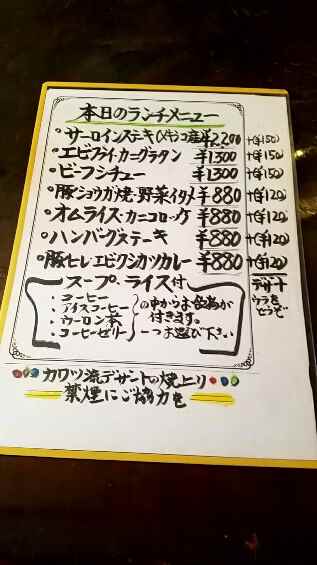 本日のランチメニュー
・サーロインステーキ(メキシコ産) ¥2,200 +(¥150)
・エビフライ・カニグラタン ¥1300 +(¥150)
・ビーフシチュー ¥1300 +(¥150)
・豚ショウガ焼・野菜イタメ ¥880 +(¥120)
・オムライス・カニコロッケ ¥880 +(¥120)
・ハンバーグステーキ ¥880 +(¥120)
・豚ヒレエビクシカツカレー ¥880 +(¥120)
スープ、ライス付
デザート
ウラを
どうぞ
・コーヒー
・アイスコーヒー
・ウーロン茶
・コーヒーゼリー
の中からお飲物が
付きます。
一つお選び下さい
カワツ流デザートの焼上り
禁煙にご協力を